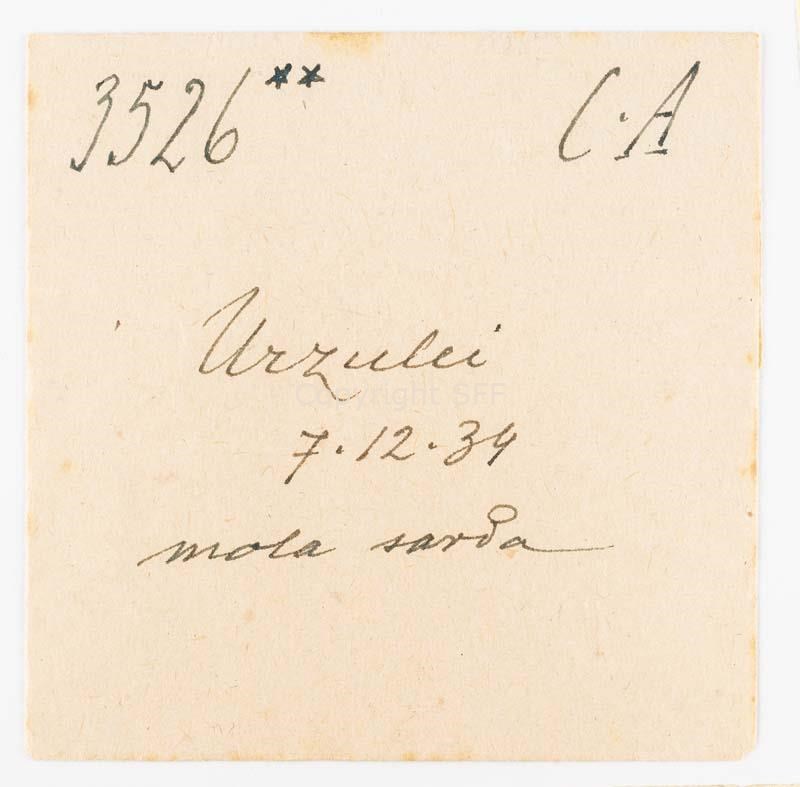 3526** C.A
Urzulei
Copyright SFF
7.12.34
mola sarda